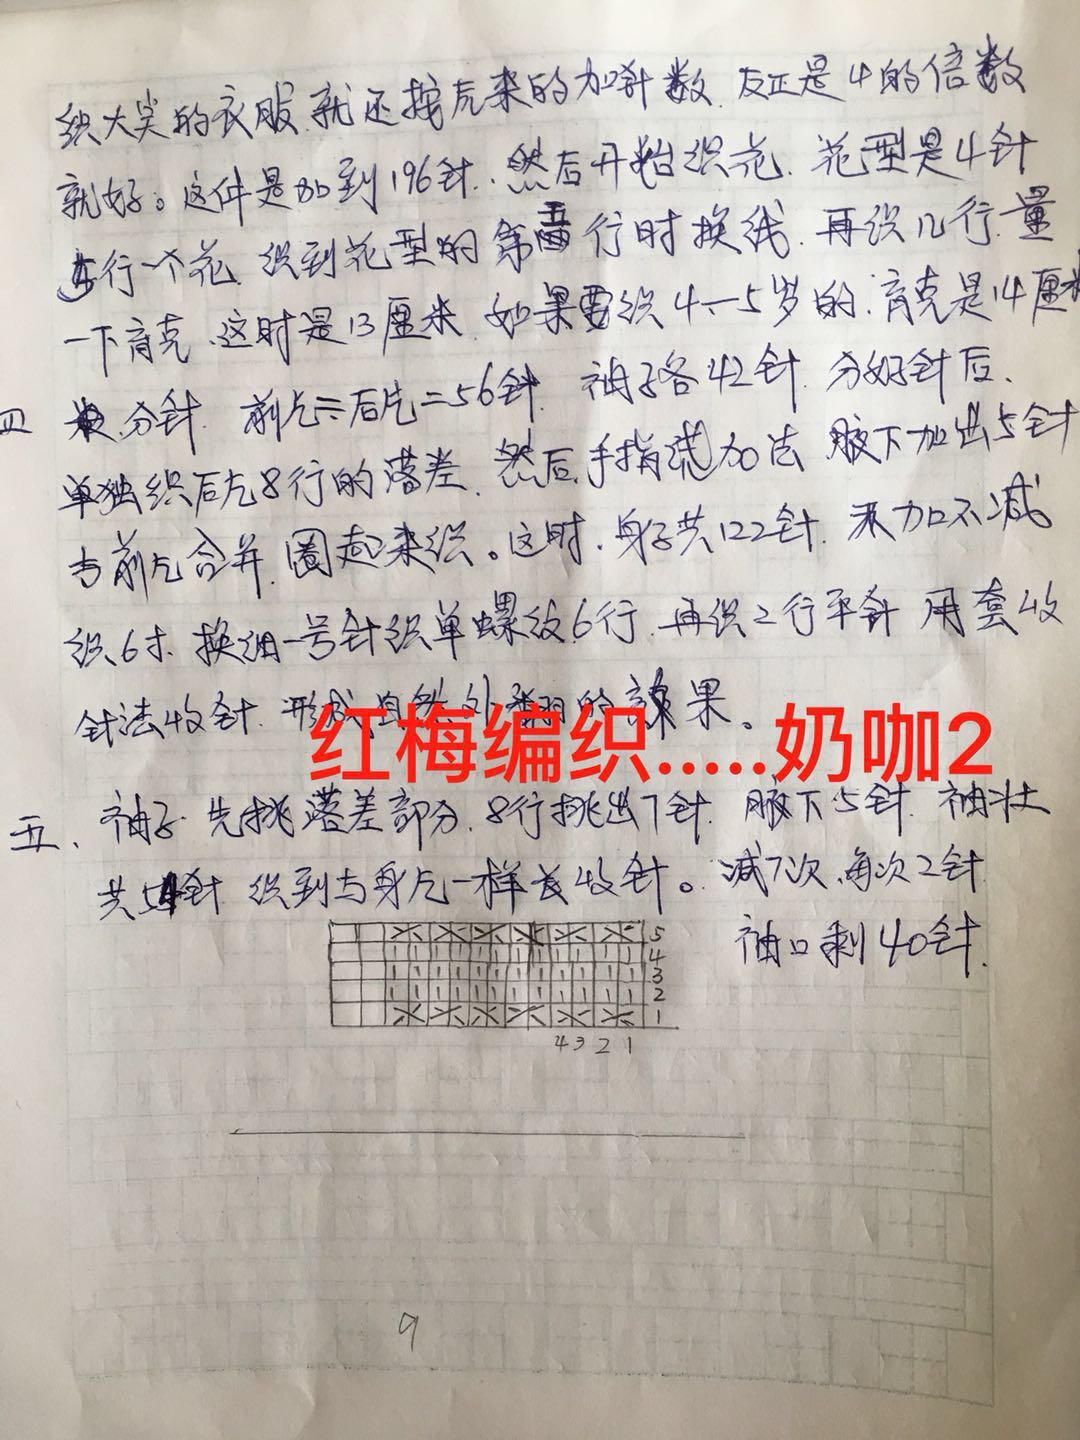 织大类的衣服.就还按原来的加针数.反正是4的倍数
就好。这件是加到196针.然后开始织花.花型是4针
5行一个花.织到花型的第五行时换线.再织几行.量
一下育克.这时是13厘米.如果要织4-5岁的.育克是14厘米
四 分针.前片=后片=56针 袖子各42针.分好针后.
单独织后片8行的落差.然后手指绕加法 腋下加出5针
与前片合并.圈起来织。这时.身子共122针.不加不减
织6寸.换细一号针织单螺纹6行.再织2行平针 用套收
针法收针.形成自然外翻的效果。
红梅编织.....奶咖2
五、袖子.先挑落差部分.8行挑出7针.腋下5针 袖壮
共54针 织到与身片一样长收针。减7次.每次2针
袖口剩40针.
5
4
3
2
1
4 3 2 1
9